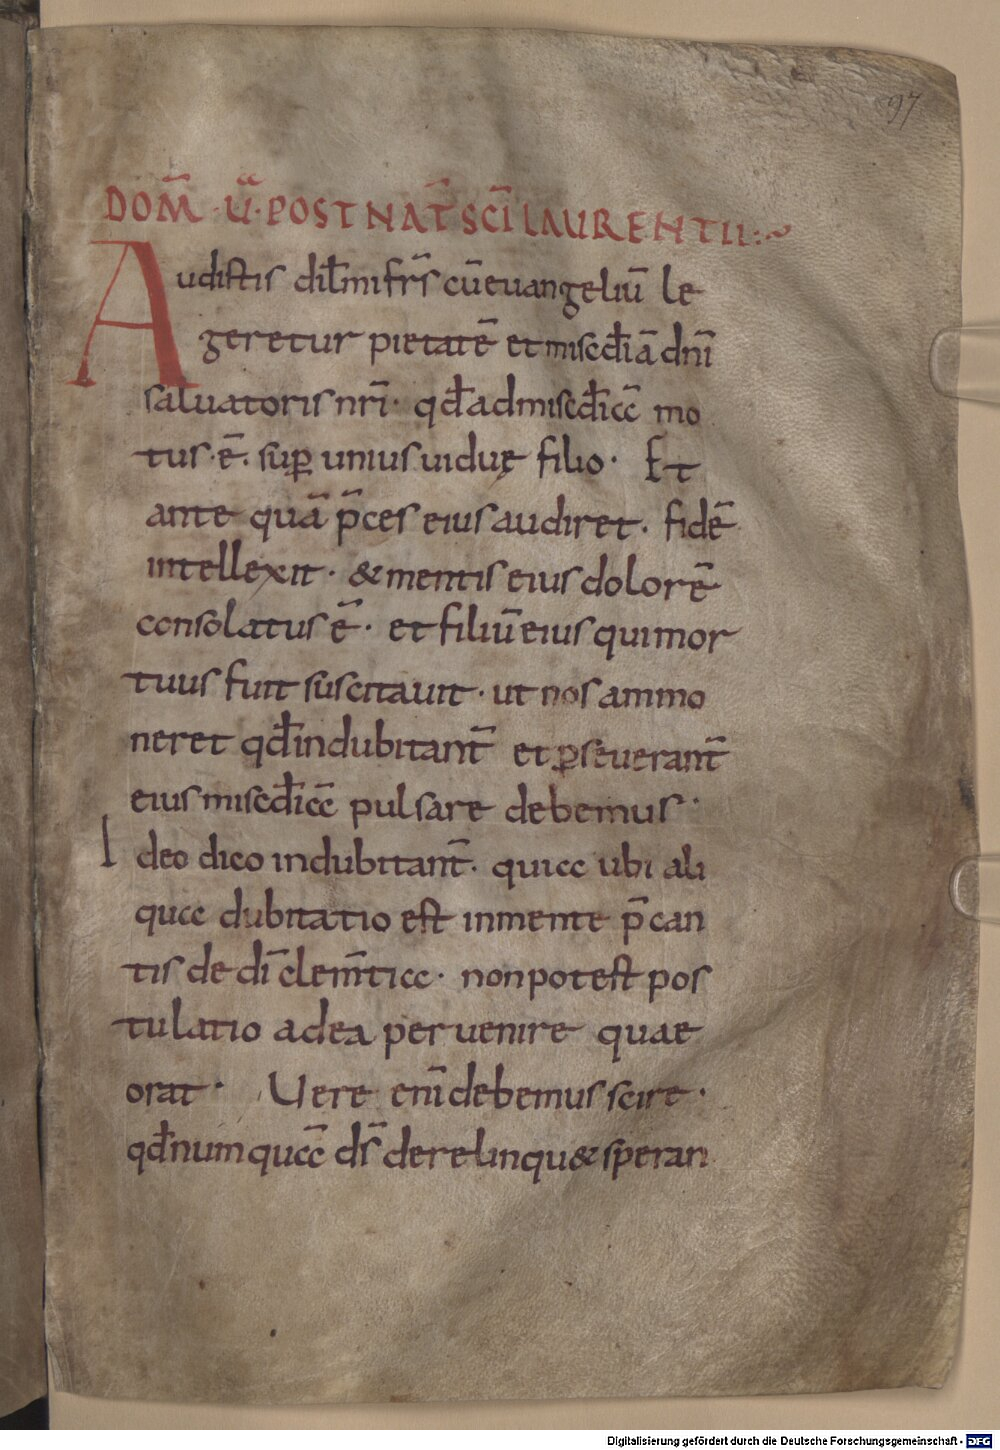 97
DOM̄ · U̅ · POST NAT̄ SC̄I LAURENTII :~
Audistis dil̄mi fr̄s cū euangeliū le
geretur pietatē et miscd̄iā dn̄i
saluatoris nr̄i · qd̄ ad miscd̄icc̄ mo
tus · ē · sup̱ unius uiduę filio · Et
ante quā p̄ces eius audiret · fidē
intellexit · & mentis eius dolorē
consolatus ē · et filiū eius qui mor
tuus fuit suscitauit · ut nos ammo
neret qd̄ indubitant̄ et p̱seuerant̄
eius miscd̄icc̄ pulsare debemus ·
Ideo dico indubitant̄ · quicc ubi ali
qucc dubitatio est in mente p̄can
tis de dī clem̄ticc · non potest pos
tulatio ad ea peruenire quae
orat · Uere enī debemus scire ·
qd̄ numqucc̄ ds̄ derelinqu& speran
Digitalisierung gefördert durch die Deutsche Forschungsgemeinschaft - DFG